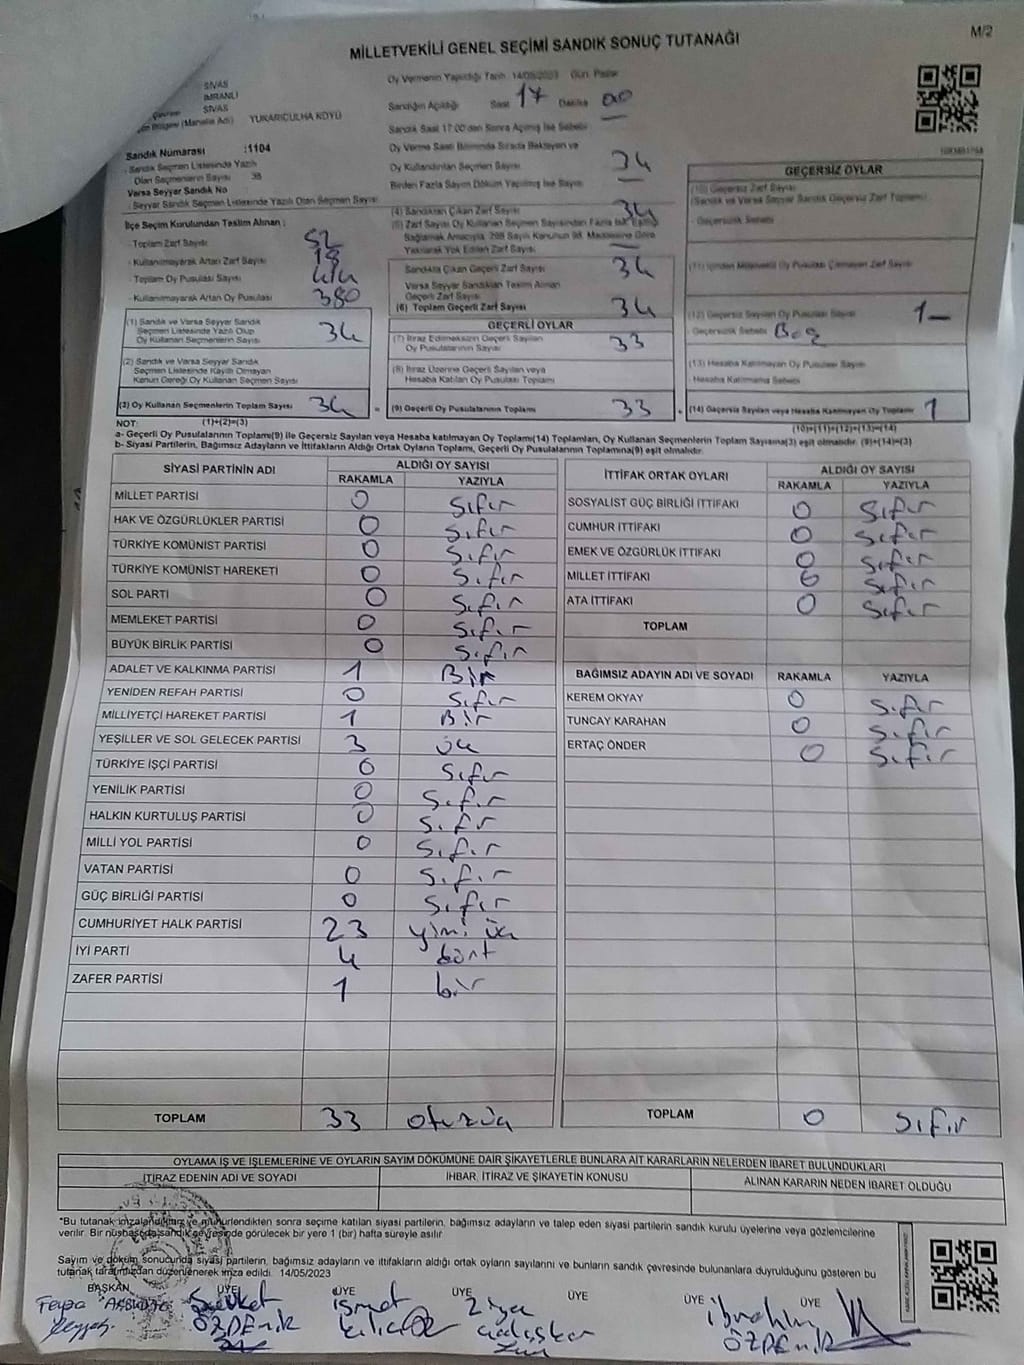 M/2
MİLLETVEKİLİ GENEL SEÇİMİ SANDIK SONUÇ TUTANAĞI
SİVAS
İMRANLI
SİVAS
YUKARIÇULHA KÖYÜ
Sandık Numarası :1104
Sandık Seçmen Listesinde Yazılı
Olan Seçmenlerin Sayısı 38
Varsa Seyyar Sandık No
Seyyar Sandık Seçmen Listesinde Yazılı Olan Seçmen Sayısı
İlçe Seçim Kurulundan Teslim Alınan :
- Toplam Zarf Sayısı 52
- Kullanılmayarak Artan Zarf Sayısı 18
- Toplam Oy Pusulası Sayısı
- Kullanılmayarak Artan Oy Pusulası 380
(1) Sandık ve Varsa Seyyar Sandık
Seçmen Listesinde Yazılı Olup
Oy Kullanan Seçmenlerin Sayısı 34
(2) Sandık ve Varsa Seyyar Sandık
Seçmen Listesinde Kayıtlı Olmayan
Kanun Gereği Oy Kullanan Seçmen Sayısı
(3) Oy Kullanan Seçmenlerin Toplam Sayısı 34
Oy Vermenin Yapıldığı Tarih 14/05/2023 Gün Pazar
Sandığın Açıldığı Saat 17 Dakika 00
Sandık Saat 17:00'den Sonra Açılmış İse Sebebi
Oy Verme Saati Bitiminde Sırada Bekleyen ve
Oy Kullandırılan Seçmen Sayısı 34
Birden Fazla Sayım Döküm Yapılmış İse Sayısı
(4) Sandıktan Çıkan Zarf Sayısı 34
(5) Zarf Sayısı Oy Kullanan Seçmen Sayısından Fazla ise, Eşitliği
Sağlamak Amacıyla, 298 Sayılı Kanunun 98. Maddesine Göre
Yakılarak Yok Edilen Zarf Sayısı
Sandıkta Çıkan Geçerli Zarf Sayısı 34
Varsa Seyyar Sandıktan Teslim Alınan
Geçerli Zarf Sayısı
(6) Toplam Geçerli Zarf Sayısı 34
GEÇERLİ OYLAR
(7) İtiraz Edilmeksizin Geçerli Sayılan
Oy Pusulalarının Sayısı 33
(8) İtiraz Üzerine Geçerli Sayılan veya
Hesaba Katılan Oy Pusulası Toplamı
= (9) Geçerli Oy Pusulalarının Toplamı 33
GEÇERSİZ OYLAR
(10) Geçersiz Zarf Sayısı
(Sandık ve Varsa Seyyar Sandık Geçersiz Zarf Toplamı)
- Geçersizlik Sebebi
(11) İçinden Milletvekili Oy Pusulası Çıkmayan Zarf Sayısı
(12) Geçersiz Sayılan Oy Pusulası Sayısı 1-
- Geçersizlik Sebebi Boş
(13) Hesaba Katılmayan Oy Pusulası Sayısı
- Hesaba Katılmama Sebebi
+ (14) Geçersiz Sayılan veya Hesaba Katılmayan Oy Toplamı 1
NOT: (1)+(2)=(3) (10)+(11)+(12)+(13)=(14)
a- Geçerli Oy Pusulalarının Toplamı(9) ile Geçersiz Sayılan veya Hesaba katılmayan Oy Toplamı(14) Toplamları, Oy Kullanan Seçmenlerin Toplam Sayısına(3) eşit olmalıdır. (9)+(14)=(3)
b- Siyasi Partilerin, Bağımsız Adayların ve İttifakların Aldığı Ortak Oyların Toplamı, Geçerli Oy Pusulalarının Toplamına(9) eşit olmalıdır.
SİYASİ PARTİNİN ADI ALDIĞI OY SAYISI
RAKAMLA YAZIYLA
MİLLET PARTİSİ 0 Sıfır
HAK VE ÖZGÜRLÜKLER PARTİSİ 0 Sıfır
TÜRKİYE KOMÜNİST PARTİSİ 0 Sıfır
TÜRKİYE KOMÜNİST HAREKETİ 0 Sıfır
SOL PARTİ 0 Sıfır
MEMLEKET PARTİSİ 0 Sıfır
BÜYÜK BİRLİK PARTİSİ 0 Sıfır
ADALET VE KALKINMA PARTİSİ 1 Bir
YENİDEN REFAH PARTİSİ 0 Sıfır
MİLLİYETÇİ HAREKET PARTİSİ 1 Bir
YEŞİLLER VE SOL GELECEK PARTİSİ 3 üç
TÜRKİYE İŞÇİ PARTİSİ 0 Sıfır
YENİLİK PARTİSİ 0 Sıfır
HALKIN KURTULUŞ PARTİSİ 0 Sıfır
MİLLİ YOL PARTİSİ 0 Sıfır
VATAN PARTİSİ 0 Sıfır
GÜÇ BİRLİĞİ PARTİSİ 0 Sıfır
CUMHURİYET HALK PARTİSİ 23 yimi üç
İYİ PARTİ 4 dört
ZAFER PARTİSİ 1 bir
TOPLAM 33 otuzüç
İTTİFAK ORTAK OYLARI ALDIĞI OY SAYISI
RAKAMLA YAZIYLA
SOSYALİST GÜÇ BİRLİĞİ İTTİFAKI 0 Sıfır
CUMHUR İTTİFAKI 0 Sıfır
EMEK VE ÖZGÜRLÜK İTTİFAKI 0 Sıfır
MİLLET İTTİFAKI 0 Sıfır
ATA İTTİFAKI 0 Sıfır
TOPLAM
BAĞIMSIZ ADAYIN ADI VE SOYADI RAKAMLA YAZIYLA
KEREM OKYAY 0 Sıfır
TUNCAY KARAHAN 0 Sıfır
ERTAÇ ÖNDER 0 Sıfır
TOPLAM 0 Sıfır
OYLAMA İŞ VE İŞLEMLERİNE VE OYLARIN SAYIM DÖKÜMÜNE DAİR ŞİKAYETLERLE BUNLARA AİT KARARLARIN NELERDEN İBARET BULUNDUKLARI
İTİRAZ EDENİN ADI VE SOYADI İHBAR, İTİRAZ VE ŞİKAYETİN KONUSU ALINAN KARARIN NEDEN İBARET OLDUĞU
*Bu tutanak imzalandıktan ve mühürlendikten sonra seçime katılan siyasi partilerin, bağımsız adayların ve talep eden siyasi partilerin sandık kurulu üyelerine veya gözlemcilerine
verilir. Bir nüshası da sandık çevresinde görülecek bir yere 1 (bir) hafta süreyle asılır.
Sayım ve döküm sonucunda siyasi partilerin, bağımsız adayların ve ittifakların aldığı ortak oyların sayılarını ve bunların sandık çevresinde bulunanlara duyrulduğunu gösteren bu
tutanak tarafımızdan düzenlenerek imza edildi. 14/05/2023
BAŞKAN ÜYE ÜYE ÜYE ÜYE ÜYE ÜYE
Şevket ÖZDEMİR
ismet
Ziya
ibrahim ÖZDEMİR